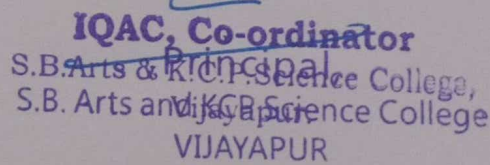 IQAC, Co-ordinator
Principal
S.B.Arts & K.C.P.Science College,
S.B. Arts and KCP Science College
Vijayapur.
VIJAYAPUR